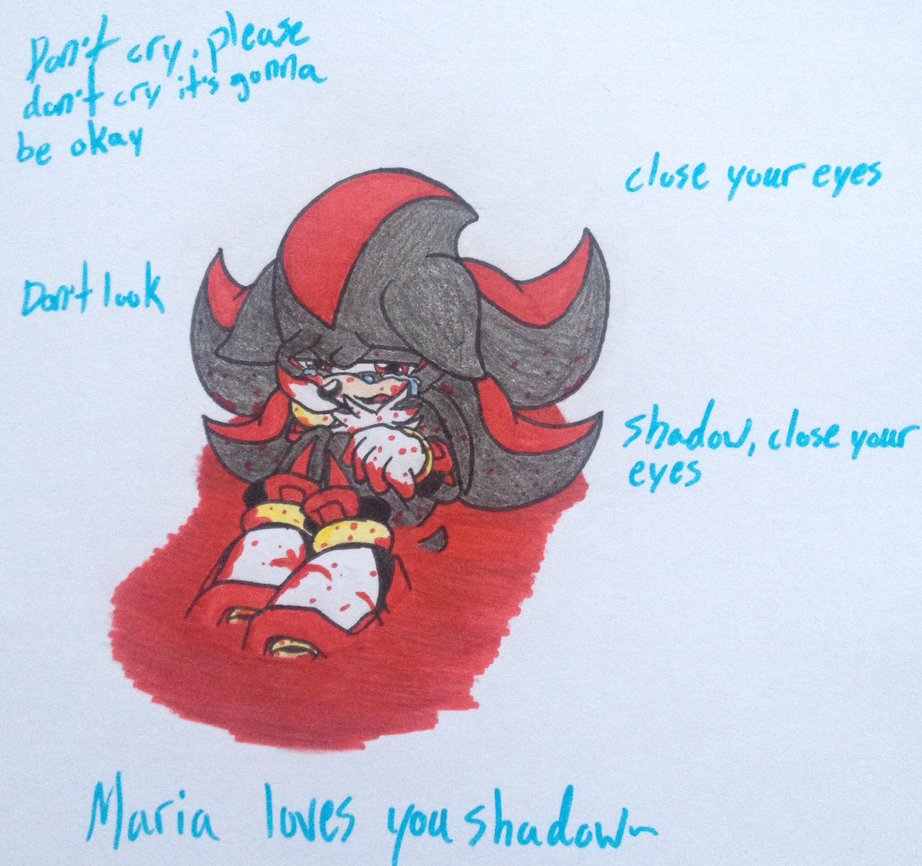 Don't cry, please
don't cry it's gonna
be okay
close your eyes
Don't look
shadow, close your
eyes
Maria loves you shadow~